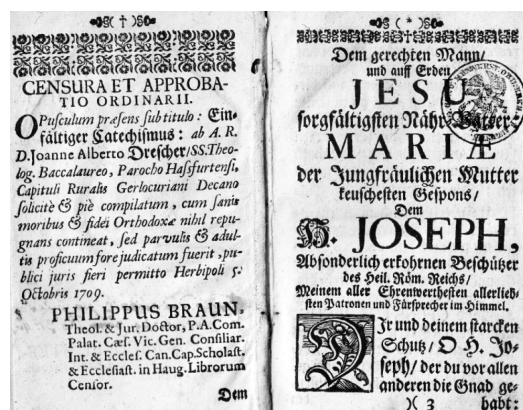 ( † )
CENSURA ET APPROBA-
TIO ORDINARII.
OPusculum præsens sub titulo : Ein-
fältiger Catechismus : ab A. R.
D. Joanne Alberto Drescher/SS.Theo-
log. Baccalaureo, Parocho Hasfurtensi,
Capituli Ruralis Gerlocuriani Decano
solicitè & piè compilatum , cum sanis
moribus & fidei Orthodoxæ nihil repu-
gnans contineat, sed parvulis & adul-
tis proficuum fore judicatum fuerit , pu-
blici juris fieri permitto Herbipoli 5.
Octobris 1709.
PHILIPPUS BRAUN,
Theol. & Jur. Doctor, P.A.Com.
Palat. Cæs. Vic. Gen. Consiliar.
Int. & Eccles. Can. Cap. Scholast.
& Ecclesiast. in Haug. Librorum
Censor.
Dem
( * )
Dem gerechten Mann/
und auff Erden
JESU
sorgfältigsten Nähr-Vatter-
MARIÆ
der Jungfräulichen Mutter
keuschesten Gespons/
Dem
H. JOSEPH,
Absonderlich erkohrnen Beschützer
des Heil. Röm. Reichs/
Meinem aller Ehrenwerthesten allerlieb-
sten Patronen und Fürsprecher im Himmel.
DIr und deinem starcken
Schutz/ O H. Jo-
seph/ der du vor allen
anderen die Gnad ge-
)( 3 habt: